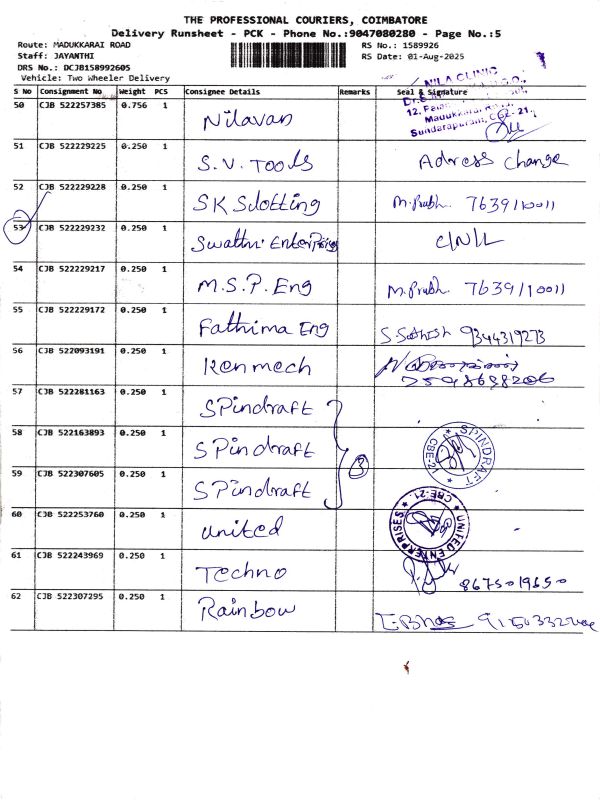 THE PROFESSIONAL COURIERS, COIMBATORE
Delivery Runsheet - PCK - Phone No.:9047080280 - Page No.:5
Route: MADUKKARAI ROAD
RS No.: 1589926
Staff: JAYANTHI
RS Date: 01-Aug-2025
DRS No.: DCJB158992605
Vehicle: Two Wheeler Delivery
NILA CLINIC
S No Consignment No Weight PCS Consignee Details Remarks Seal & Signature
50 CJB 522257385 0.756 1 Nilavan
Sundarapuram, CBE-21.
51 CJB 522229225 0.250 1 S.V. Tools Adress change
52 CJB 522229228 0.250 1 SK Slotting M. Prabh. 7639110011
53 CJB 522229232 0.250 1 Swathi Enterprises C/N/L
54 CJB 522229217 0.250 1 M.S.P. Eng M. Prabh. 7639110011
55 CJB 522229172 0.250 1 Fathima Eng S Sathish 9344319273
56 CJB 522093191 0.250 1 Kenmech 7598698206
57 CJB 522281163 0.250 1 SPindraft
58 CJB 522163893 0.250 1 SPindraft
3
SPINDRAFT
CBE-21
59 CJB 522307605 0.250 1 SPindraft
60 CJB 522253760 0.250 1 united
UNITED ENTERPRISES
CBE-21.
61 CJB 522243969 0.250 1 Techno 8675019650
62 CJB 522307295 0.250 1 Rainbow